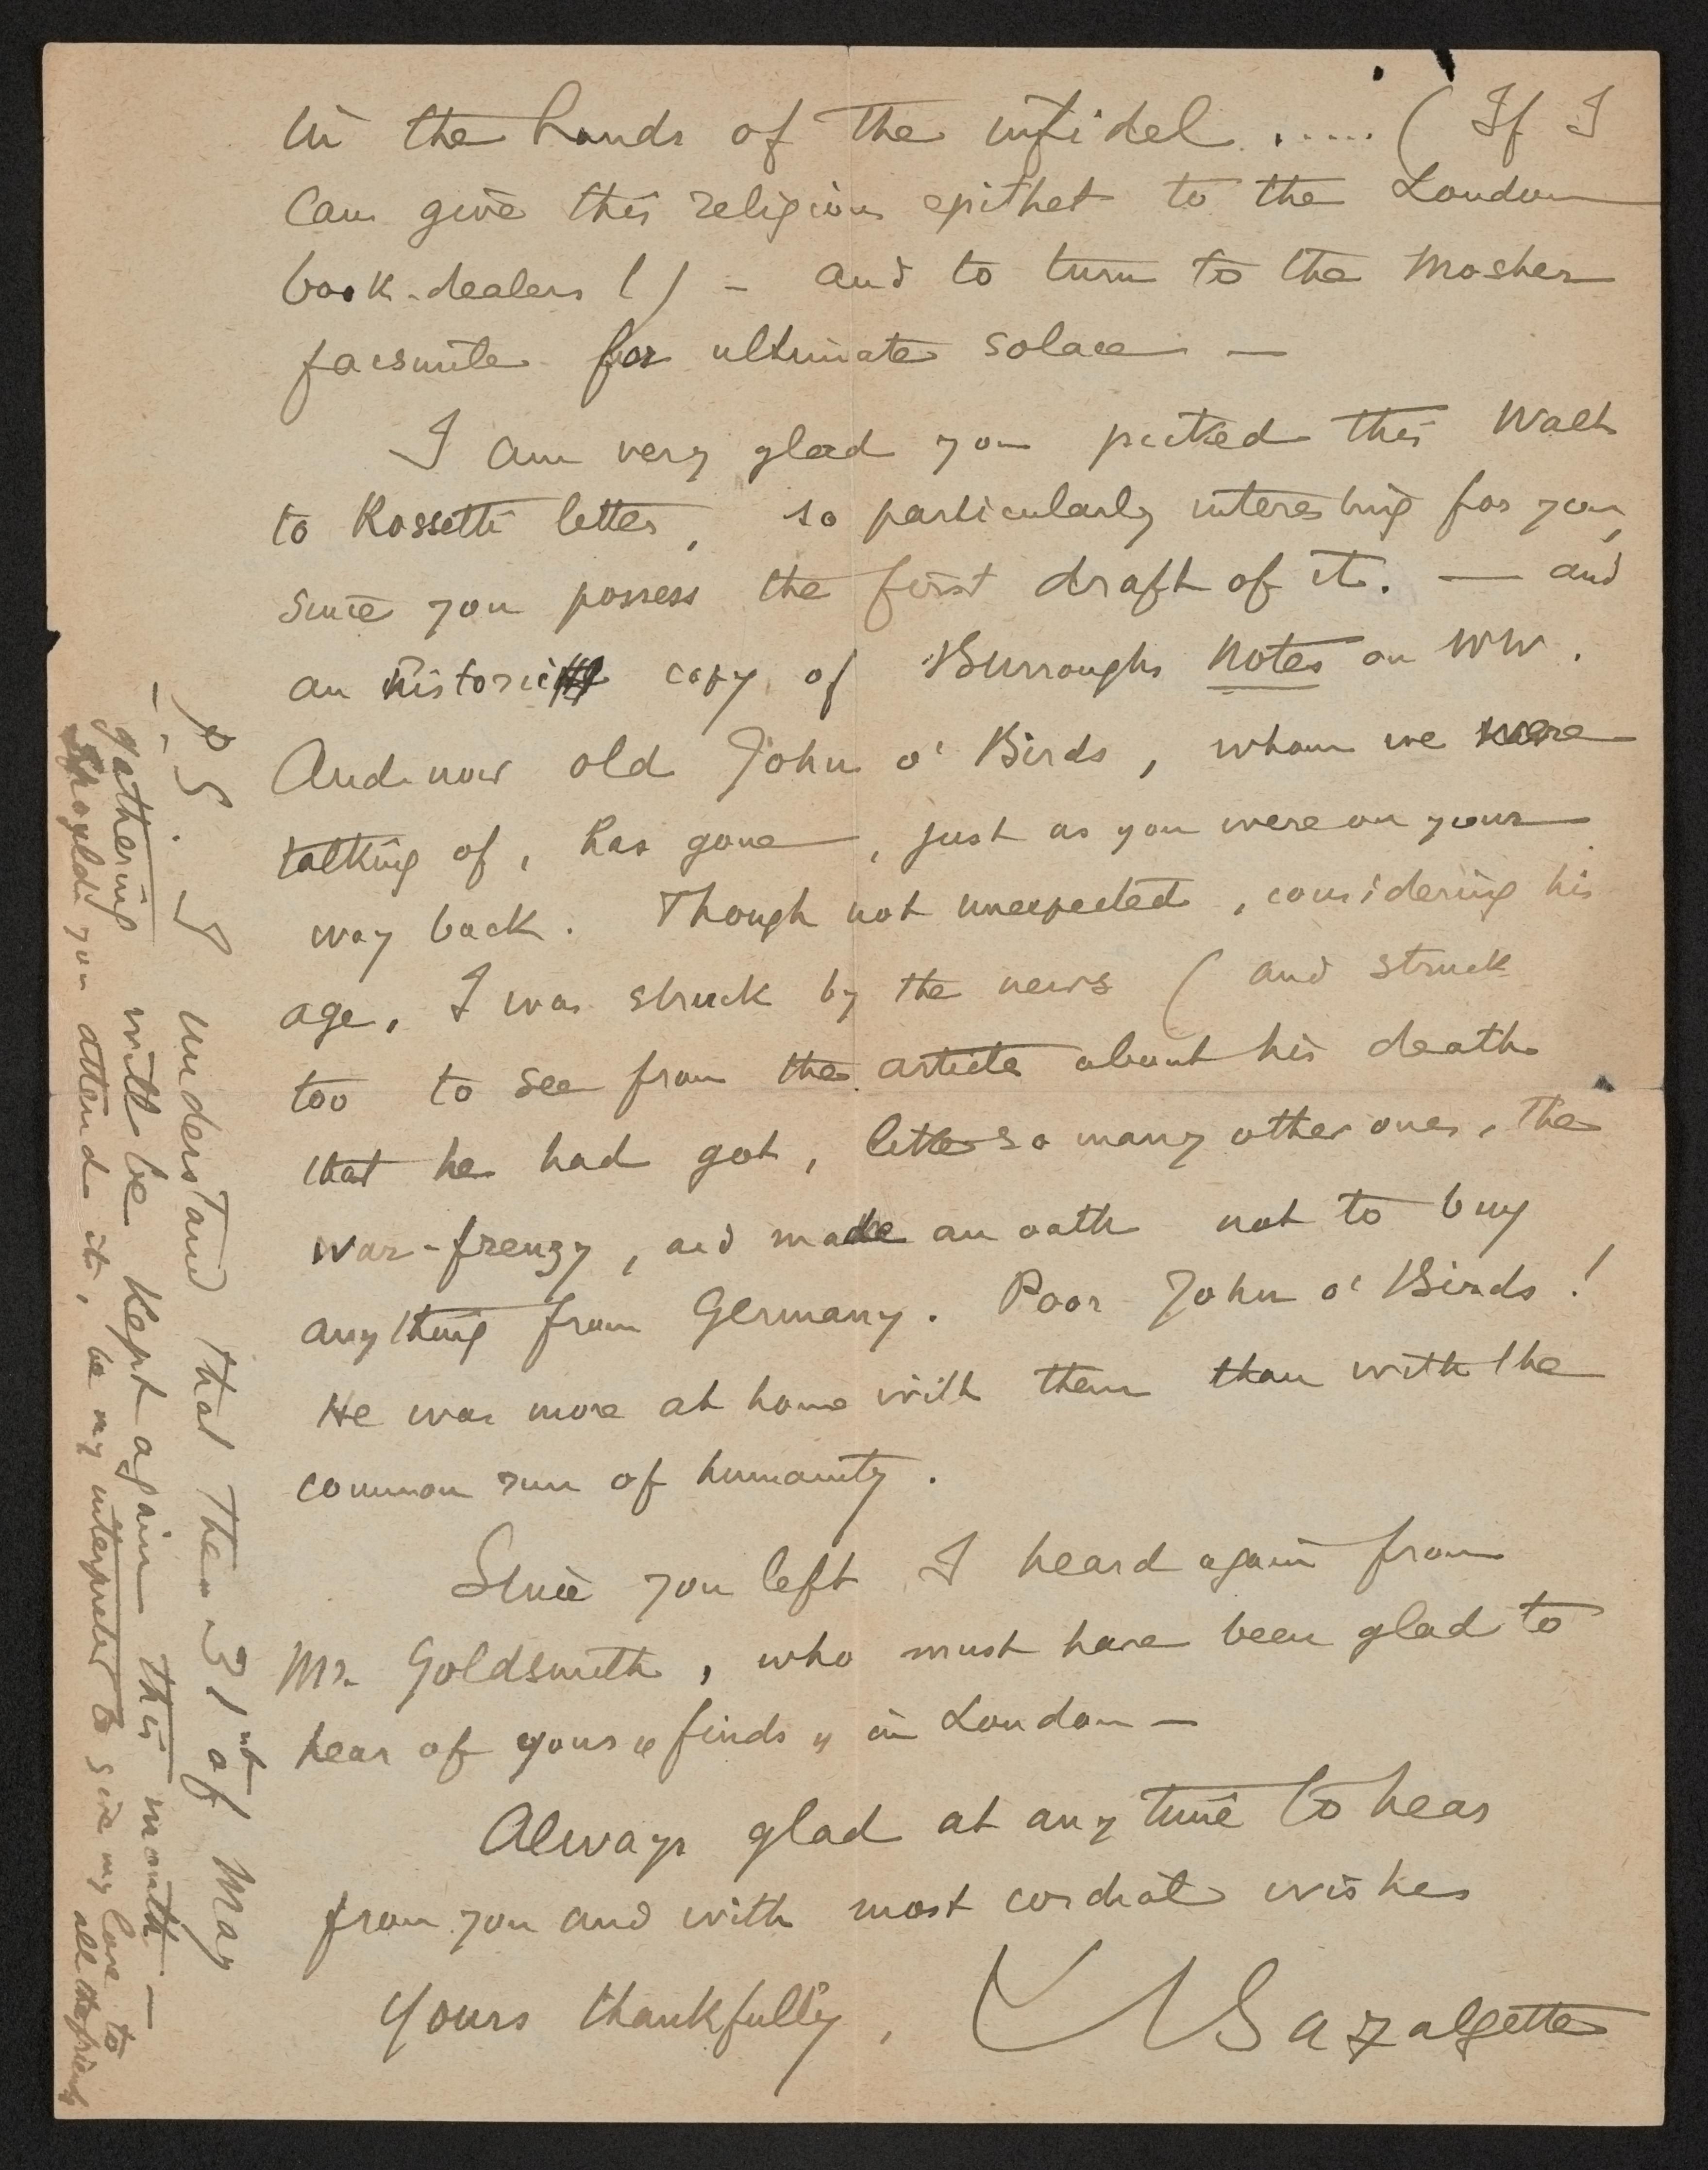 in the hands of the infidel ..... ( If I
can give this religious epithet to the London
book-dealers !) - and to turn to the Mosher
facsimile for ultimate solace —
I am very glad you picked this Walt
to Rossetti letter, so particularly interesting for you,
since you possess the first draft of it. — and
an historic copy of Burroughs Notes on WW.
And now old John o' Birds, whom we were
talking of, has gone, just as you were on your
way back. Though not unexpected, considering his
age, I was struck by the news ( and struck
too to see from the article about his death
that he had got, like so many other ones, the
war-frenzy, and made an oath not to buy
anything from Germany. Poor John o' Birds !
He was more at home with them than with the
common run of humanity.
Since you left I heard again from
Mr. Goldsmith, who must have been glad to
hear of your « finds » in London —
Always glad at any time to hear
from you and with most cordial wishes
Yours thankfully,
Bazalgette
P.S. I understand that the 31st of May
gathering will be kept again this month —
Should you attend it, be my interpreter to give my love to
all the friends